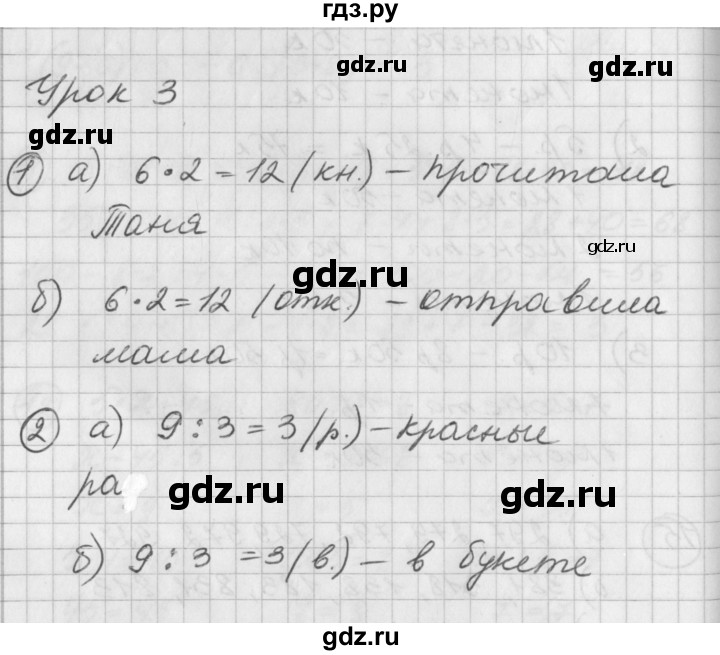 гдз.ру
gdz.ru
gdz.ru
Урок 3
gdz.ru
1 а) 6·2=12 (кн.) – прочитала
Таня
gdz.ru
gdz.ru
б) 6·2=12 (отк.) – отправила
мама
2 а) 9:3=3 (р.) – красные
gdz.ru
gdz.ru
б) 9:3=3 (в.) – в букете
gdz.ru